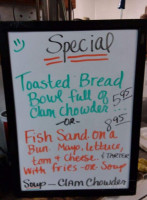 Special
Toasted Bread
Bowl full of
Clam Chowder... 5.95
-OR-
8.95
Fish Sand on a
Bun. Mayo, lettuce,
tom, & cheese. & TARTER
With Fries -or- Soup
Soup - Clam Chowder